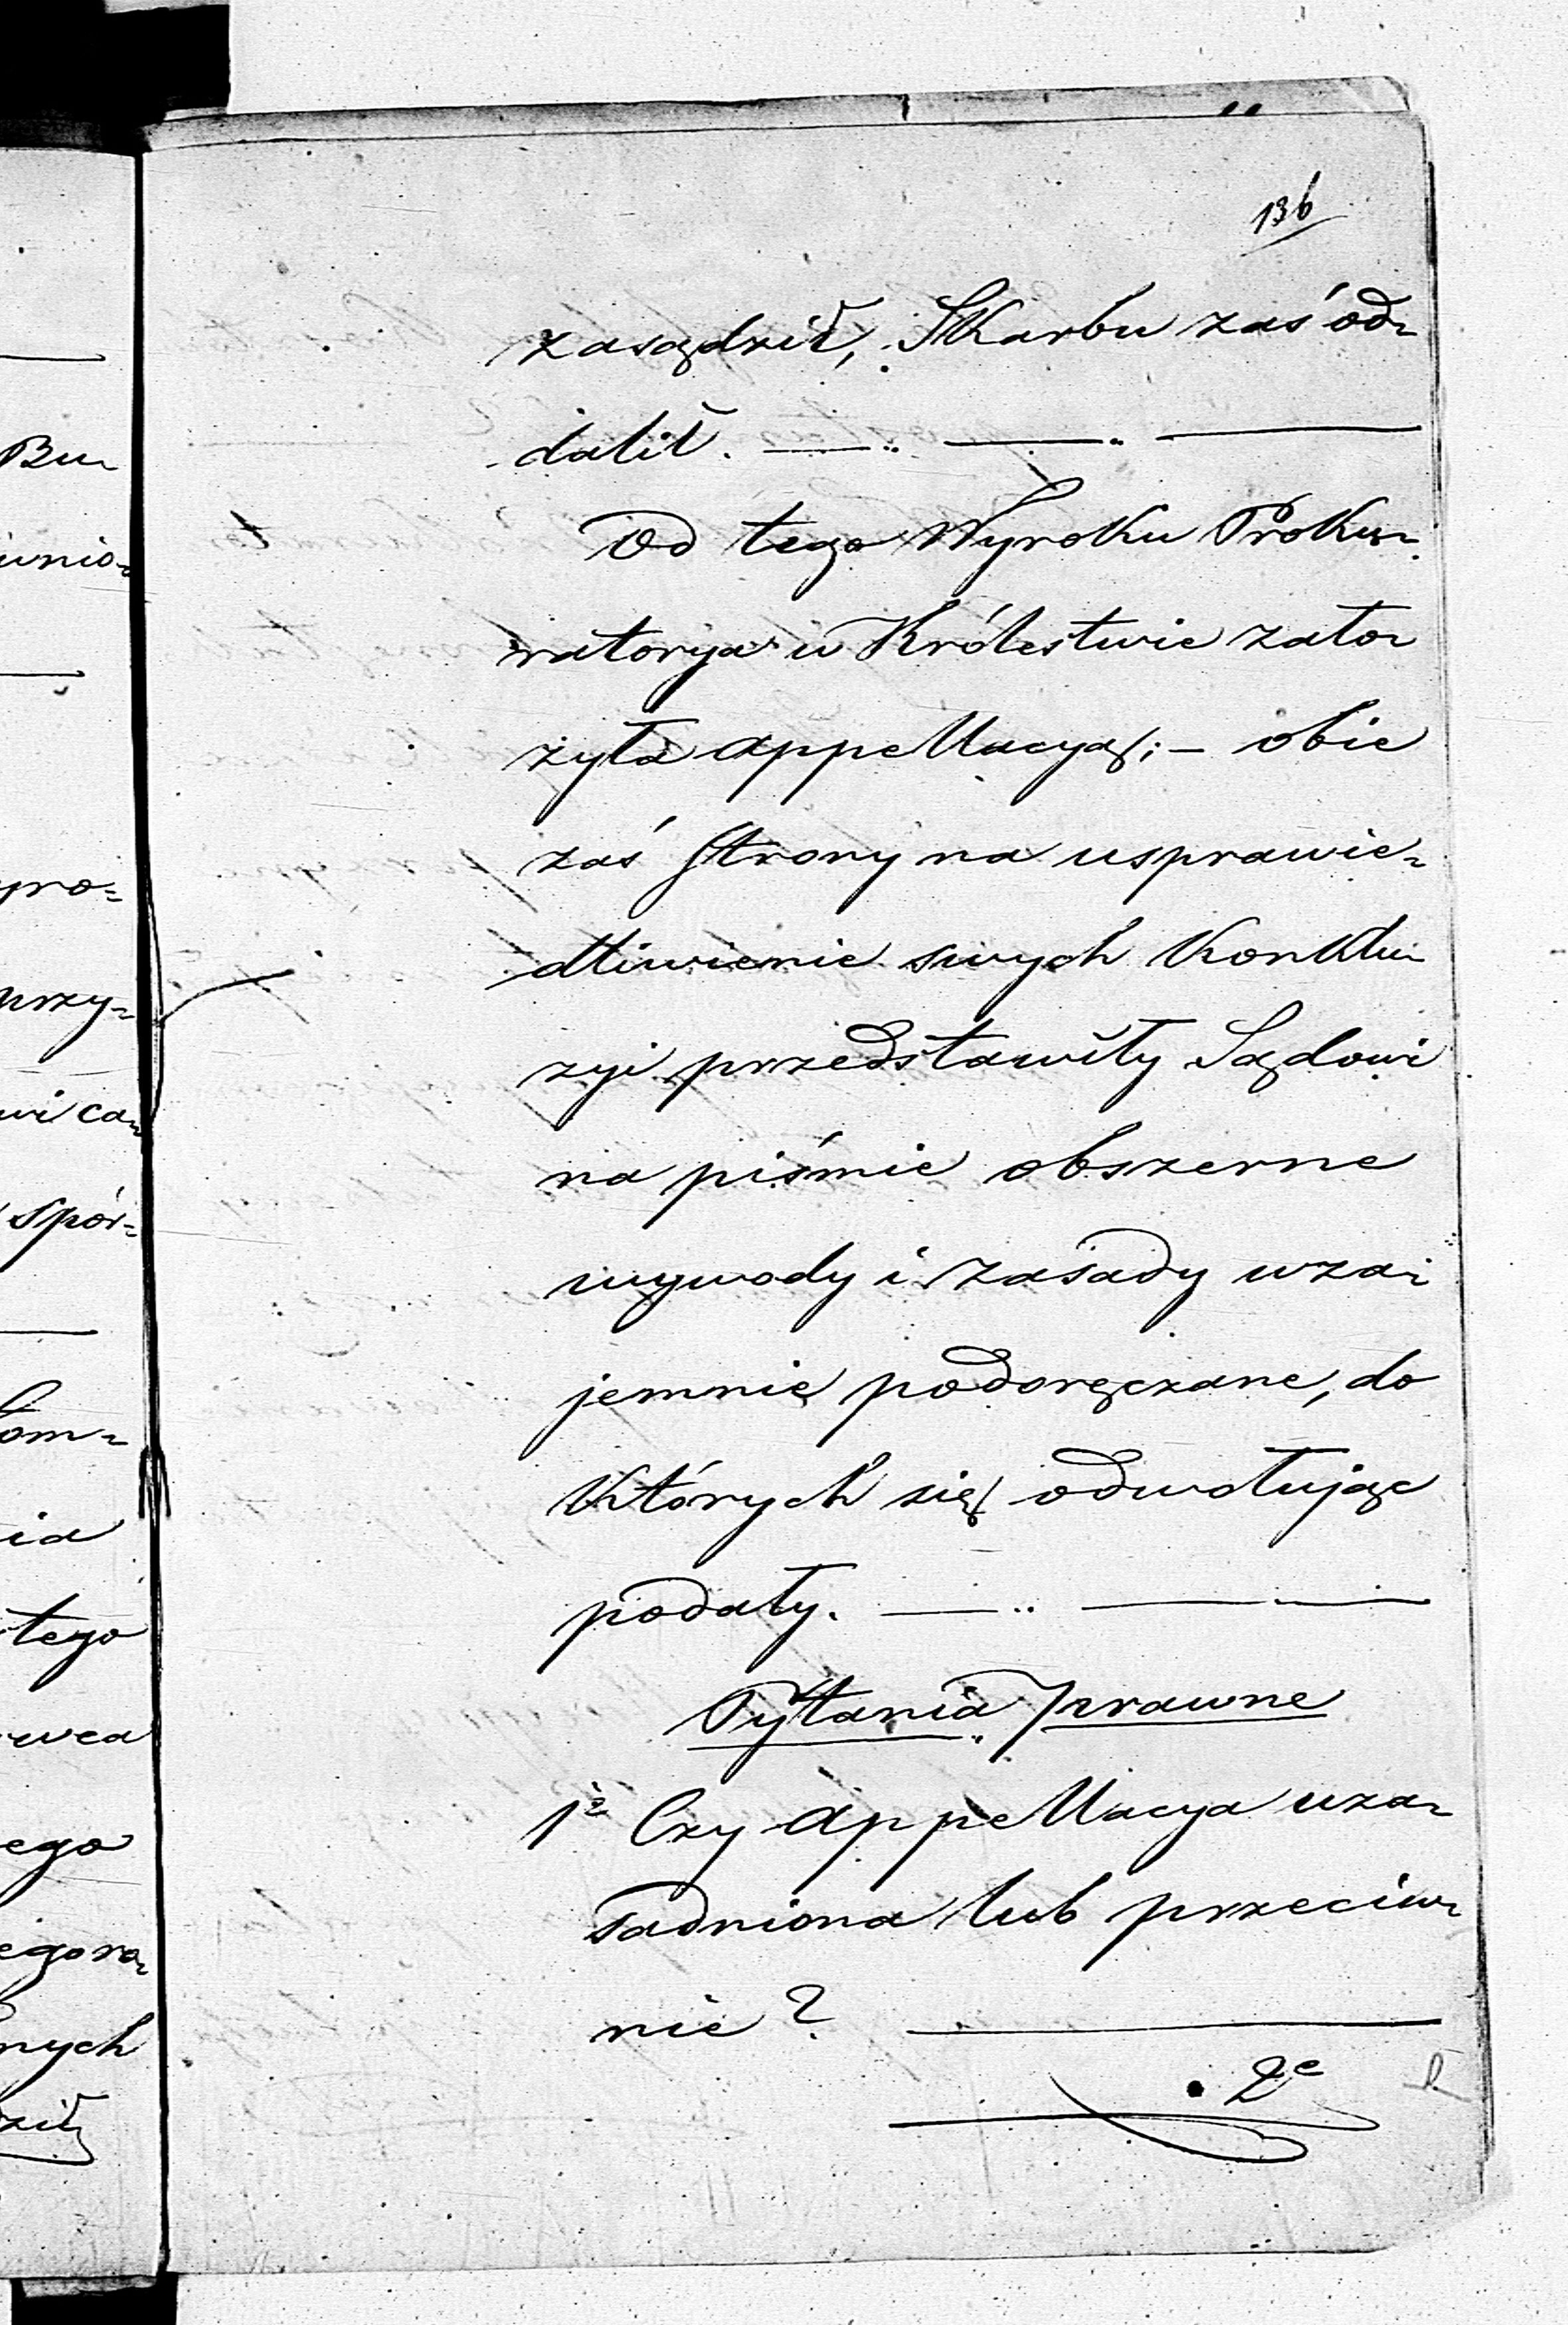 136
zasądził, Skarbu zaś od-
dalił.
Od tego Wyroku Proku-
ratorya w Królestwie zało-
żyła appellacyą; — obie
zaś strony na usprawie-
dliwienie swych Konklu-
zyi przedstawiły Sądowi
na piśmie obszerne
wywody i zasady wza-
jemnie podoręczane, do
których się odwołując
podały.
Pytania prawne
1e Czy appellacya uza-
sadniona lub przeciw-
nie?
2e
Bu-
wnio-
pro-
przy-
wi ca-
spór-
om-
ia
tego
wca
ego
egora-
nych
ził